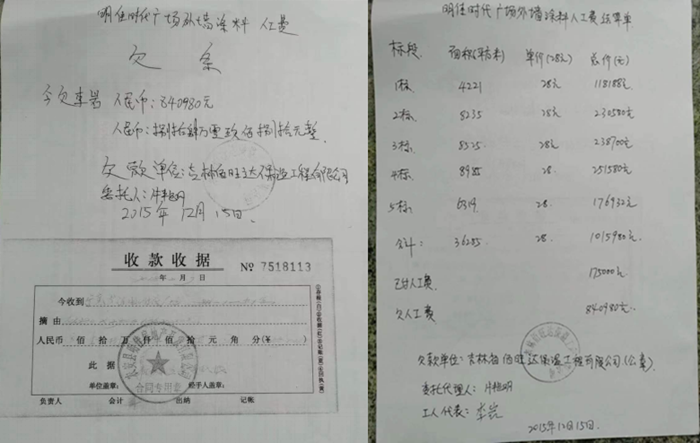 明佳时代广场外墙涂料 人工费
欠 条
今欠李岩 人民币：840980元
人民币：捌拾肆万零玖佰捌拾元整
欠款单位：吉林佰旺达保温工程有限公司
委托人：牛艳明
2015年 12月 15日.
收款收据
№ 7518113
年 月 日
今收到
摘由
人民币 佰 拾 万 仟 佰 拾 元 角 分(¥ )
此据
合同专用章
单位盖章： 经手人盖章：
负责人 会计 出纳 记帐
明佳时代广场外墙涂料人工费结算单
标段 面积(平方米) 单价(28元) 总价(元)
1栋 4221 28元 118188元
2栋 8235 28元 230580元
3栋 8525 28元 238700元
4栋 8985 28 251580元
5栋 6319 28 176932元
合计： 36285 28 1015980元
已付人工费 175000元
欠人工费 840980元.
欠款单位：吉林省佰旺达保温工程有限公司(公章)
委托代理人：牛艳明
工人代表：李岩
2015年12月15日.